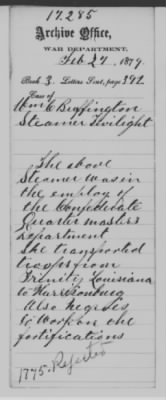 17.285
Archive Office,
WAR DEPARTMENT,
Feb 27, 1879.
Book 3. Letters Sent, page 292
Case of
Wm C Buffington
Steamer Twilight
The above
Steamer was in
the employ of
the Confederate
Quartermasters
Department
She transported
troops from
Trinity Louisiana
to Harrisonburg
Also Negroes
to work on the
fortifications
1775. Rejected